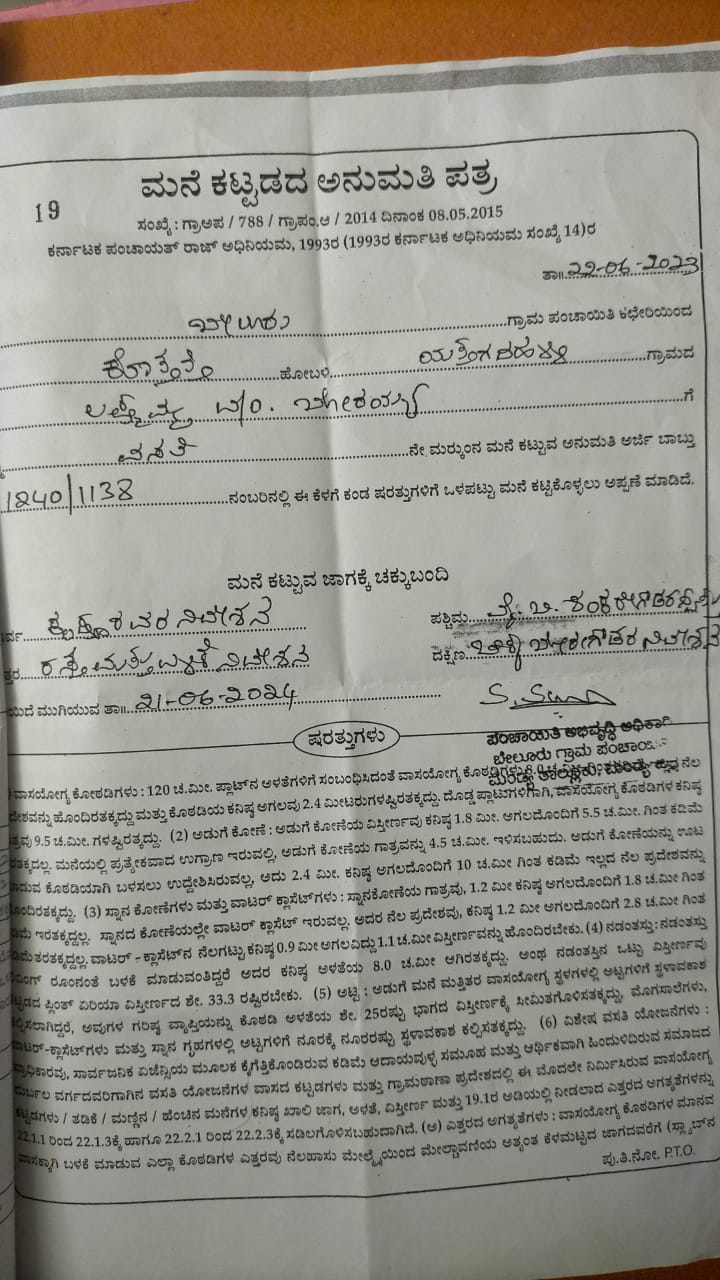 19
ಮನೆ ಕಟ್ಟಡದ ಅನುಮತಿ ಪತ್ರ
ಸಂಖ್ಯೆ : ಗ್ರಾಅಪ / 788 / ಗ್ರಾಪಂ.ಆ / 2014 ದಿನಾಂಕ 08.05.2015
ಕರ್ನಾಟಕ ಪಂಚಾಯತ್ ರಾಜ್ ಅಧಿನಿಯಮ, 1993ರ (1993ರ ಕರ್ನಾಟಕ ಅಧಿನಿಯಮ ಸಂಖ್ಯೆ 14)ರ
ತಾ॥ 22-06-2023
ಬೇಲೂರು ಗ್ರಾಮ ಪಂಚಾಯಿತಿ ಕಛೇರಿಯಿಂದ
ಕೊತ್ತತ್ತಿ ಹೋಬಳಿ ಗ್ರಾಮದ
ಲಕ್ಷ್ಮಮ್ಮ W/O. ಬೋರಯ್ಯ ಗೆ
ವಸತಿ ನೇ ಮರ‍್ಕುಂನ ಮನೆ ಕಟ್ಟುವ ಅನುಮತಿ ಅರ್ಜಿ ಬಾಬ್ತು
1240/1138 ನಂಬರಿನಲ್ಲಿ ಈ ಕೆಳಗೆ ಕಂಡ ಷರತ್ತುಗಳಿಗೆ ಒಳಪಟ್ಟು ಮನೆ ಕಟ್ಟಿಕೊಳ್ಳಲು ಅಪ್ಪಣೆ ಮಾಡಿದೆ.
ಮನೆ ಕಟ್ಟುವ ಜಾಗಕ್ಕೆ ಚಕ್ಕುಬಂದಿ
ರ್ವ ನಿವೇಶನ ಪಶ್ಚಿಮ ವೈ.ಬಿ. ಶಂಕರೇಗೌಡರ
ತ್ತರ ರಸ್ತೆ ಮತ್ತು ನಿವೇಶನ ದಕ್ಷಿಣ ಬೋರೇಗೌಡರ ನಿವೇಶನ
ಯಿದೆ ಮುಗಿಯುವ ತಾ॥ 21-06-2024
ಪಂಚಾಯಿತಿ ಅಭಿವೃದ್ಧಿ ಅಧಿಕಾರಿ
ಷರತ್ತುಗಳು
ಬೇಲೂರು ಗ್ರಾಮ ಪಂಚಾಯಿ
ಮಂಡ್ಯ ತಾಲ್ಲೂಕು, ಮಂಡ್ಯ ಜಿಲ್ಲೆ
ವಾಸಯೋಗ್ಯ ಕೋಠಡಿಗಳು : 120 ಚ.ಮೀ. ಪ್ಲಾಟ್‌ನ ಅಳತೆಗಳಿಗೆ ಸಂಬಂಧಿಸಿದಂತೆ ವಾಸಯೋಗ್ಯ ಕೊಠಡಿಗಳು ನೆಲ
ದೇಶವನ್ನು ಹೊಂದಿರತಕ್ಕದ್ದು ಮತ್ತು ಕೊಠಡಿಯ ಕನಿಷ್ಠ ಅಗಲವು 2.4 ಮೀಟರುಗಳಷ್ಟಿರತಕ್ಕದ್ದು. ದೊಡ್ಡ ಪ್ಲಾಟುಗಳಿಗಾಗಿ, ವಾಸಯೋಗ್ಯ ಕೊಠಡಿಗಳ ಕನಿಷ್ಠ
ತ್ರವು 9.5 ಚ.ಮೀ. ಗಳಷ್ಟಿರತ್ಕದ್ದು. (2) ಅಡುಗೆ ಕೋಣೆ : ಅಡುಗೆ ಕೋಣೆಯ ವಿಸ್ತೀರ್ಣವು ಕನಿಷ್ಠ 1.8 ಮೀ. ಅಗಲದೊಂದಿಗೆ 5.5 ಚ.ಮೀ. ಗಿಂತ ಕಡಿಮೆ
ತಕ್ಕದಲ್ಲ. ಮನೆಯಲ್ಲಿ ಪ್ರತ್ಯೇಕವಾದ ಉಗ್ರಾಣ ಇರುವಲ್ಲಿ, ಅಡುಗೆ ಕೋಣೆಯ ಗಾತ್ರವನ್ನು 4.5 ಚ.ಮೀ. ಇಳಿಸಬಹುದು. ಅಡುಗೆ ಕೋಣೆಯನ್ನು ಊಟ
ಡುವ ಕೊಠಡಿಯಾಗಿ ಬಳಸಲು ಉದ್ದೇಶಿಸಿರುವಲ್ಲ, ಅದು 2.4 ಮೀ. ಕನಿಷ್ಠ ಅಗಲದೊಂದಿಗೆ 10 ಚ.ಮೀ ಗಿಂತ ಕಡಿಮೆ ಇಲ್ಲದ ನೆಲ ಪ್ರದೇಶವನ್ನು
ೊಂದಿರತಕ್ಕದ್ದು. (3) ಸ್ನಾನ ಕೋಣೆಗಳು ಮತ್ತು ವಾಟರ್ ಕ್ಲಾಸೆಟ್‌ಗಳು : ಸ್ನಾನಕೋಣೆಯ ಗಾತ್ರವು, 1.2 ಮೀ ಕನಿಷ್ಠ ಅಗಲದೊಂದಿಗೆ 1.8 ಚ.ಮೀ ಗಿಂತ
ಡಿಮೆ ಇರತಕ್ಕದ್ದಲ್ಲ. ಸ್ನಾನದ ಕೋಣೆಯಲ್ಲೇ ವಾಟರ್ ಕ್ಲಾಸೆಟ್ ಇರುವಲ್ಲ. ಅದರ ನೆಲ ಪ್ರದೇಶವು, ಕನಿಷ್ಠ 1.2 ಮೀ ಅಗಲದೊಂದಿಗೆ 2.8 ಚ.ಮೀ ಗಿಂತ
ಡಿಮೆ ತರತಕ್ಕದ್ದಲ್ಲ. ವಾಟರ್ - ಕ್ಲಾಸೆಟ್‌ನ ನೆಲಗಟ್ಟು ಕನಿಷ್ಠ 0.9 ಮೀ ಅಗಲವಿದ್ದು 1.1 ಚ.ಮೀ ವಿಸ್ತೀರ್ಣವನ್ನು ಹೊಂದಿರಬೇಕು. (4) ನಡಂತಸ್ತು : ನಡಂತಸ್ತು
ವಿಂಗ್ ರೂಂನಂತೆ ಬಳಕೆ ಮಾಡುವಂತಿದ್ದರೆ ಅದರ ಕನಿಷ್ಠ ಅಳತೆಯ 8.0 ಚ.ಮೀ ಆಗಿರತಕ್ಕದ್ದು. ಅಂಥ ನಡಂತಸ್ತಿನ ಒಟ್ಟು ವಿಸ್ತೀರ್ಣವು
ಟ್ಟಡದ ಪ್ಲಿಂತ್ ಏರಿಯಾ ವಿಸ್ತೀರ್ಣದ ಶೇ. 33.3 ರಷ್ಟಿರಬೇಕು. (5) ಅಟ್ಟ : ಅಡುಗೆ ಮನೆ ಮತ್ತಿತರ ವಾಸಯೋಗ್ಯ ಸ್ಥಳಗಳಲ್ಲಿ ಅಟ್ಟಗಳಿಗೆ ಸ್ಥಳಾವಕಾಶ
ಲ್ಪಿಸಲಾಗಿದ್ದರೆ, ಅವುಗಳ ಗರಿಷ್ಠ ವ್ಯಾಪ್ತಿಯನ್ನು ಕೊಠಡಿ ಅಳತೆಯ ಶೇ. 25ರಷ್ಟು ಭಾಗದ ವಿಸ್ತೀರ್ಣಕ್ಕೆ ಸೀಮಿತಗೊಳಿಸತಕ್ಕದ್ದು. ಮೊಗಸಾಲೆಗಳು,
ವಾಟರ್-ಕ್ಲಾಸೆಟ್‌ಗಳು ಮತ್ತು ಸ್ನಾನ ಗೃಹಗಳಲ್ಲಿ ಅಟ್ಟಗಳಿಗೆ ನೂರಕ್ಕೆ ನೂರರಷ್ಟು ಸ್ಥಳಾವಕಾಶ ಕಲ್ಪಿಸತಕ್ಕದ್ದು. (6) ವಿಶೇಷ ವಸತಿ ಯೋಜನೆಗಳು :
ಪ್ರಾಧಿಕಾರವು, ಸಾರ್ವಜನಿಕ ಏಜೆನ್ಸಿಯ ಮೂಲಕ ಕೈಗೆತ್ತಿಕೊಂಡಿರುವ ಕಡಿಮೆ ಆದಾಯವುಳ್ಳ ಸಮೂಹ ಮತ್ತು ಆರ್ಥಿಕವಾಗಿ ಹಿಂದುಳಿದಿರುವ ಸಮಾಜದ
ದುರ್ಬಲ ವರ್ಗದವರಿಗಾಗಿನ ವಸತಿ ಯೋಜನೆಗಳ ವಾಸದ ಕಟ್ಟಡಗಳು ಮತ್ತು ಗ್ರಾಮಠಾಣಾ ಪ್ರದೇಶದಲ್ಲಿ ಈ ಮೊದಲೇ ನಿರ್ಮಿಸಿರುವ ವಾಸಯೋಗ್ಯ
ಕಟ್ಟಡಗಳು / ತಡಿಕೆ / ಮಣ್ಣಿನ / ಹೆಂಚಿನ ಮನೆಗಳ ಕನಿಷ್ಠ ಖಾಲಿ ಜಾಗ, ಅಳತೆ, ವಿಸ್ತೀರ್ಣ ಮತ್ತು 19.1ರ ಅಡಿಯಲ್ಲಿ ನೀಡಲಾದ ಎತ್ತರದ ಅಗತ್ಯತೆಗಳನ್ನು
22.1.1 ರಿಂದ 22.1.3ಕ್ಕೆ ಹಾಗೂ 22.2.1 ರಿಂದ 22.2.3ಕ್ಕೆ ಸಡಿಲಗೊಳಿಸಬಹುದಾಗಿದೆ. (ಅ) ಎತ್ತರದ ಅಗತ್ಯತೆಗಳು : ವಾಸಯೋಗ್ಯ ಕೊಠಡಿಗಳ ಮಾನವ
ವಾಸಕ್ಕಾಗಿ ಬಳಕೆ ಮಾಡುವ ಎಲ್ಲಾ ಕೊಠಡಿಗಳ ಎತ್ತರವು ನೆಲಹಾಸು ಮೇಲ್ಮೈಯಿಂದ ಮೇಲ್ಚಾವಣಿಯ ಅತ್ಯಂತ ಕೆಳಮಟ್ಟದ ಜಾಗದವರೆಗೆ (ಸ್ಲ್ಯಾಬ್‌ನ
ಪು.ತಿ.ನೋ. P.T.O.